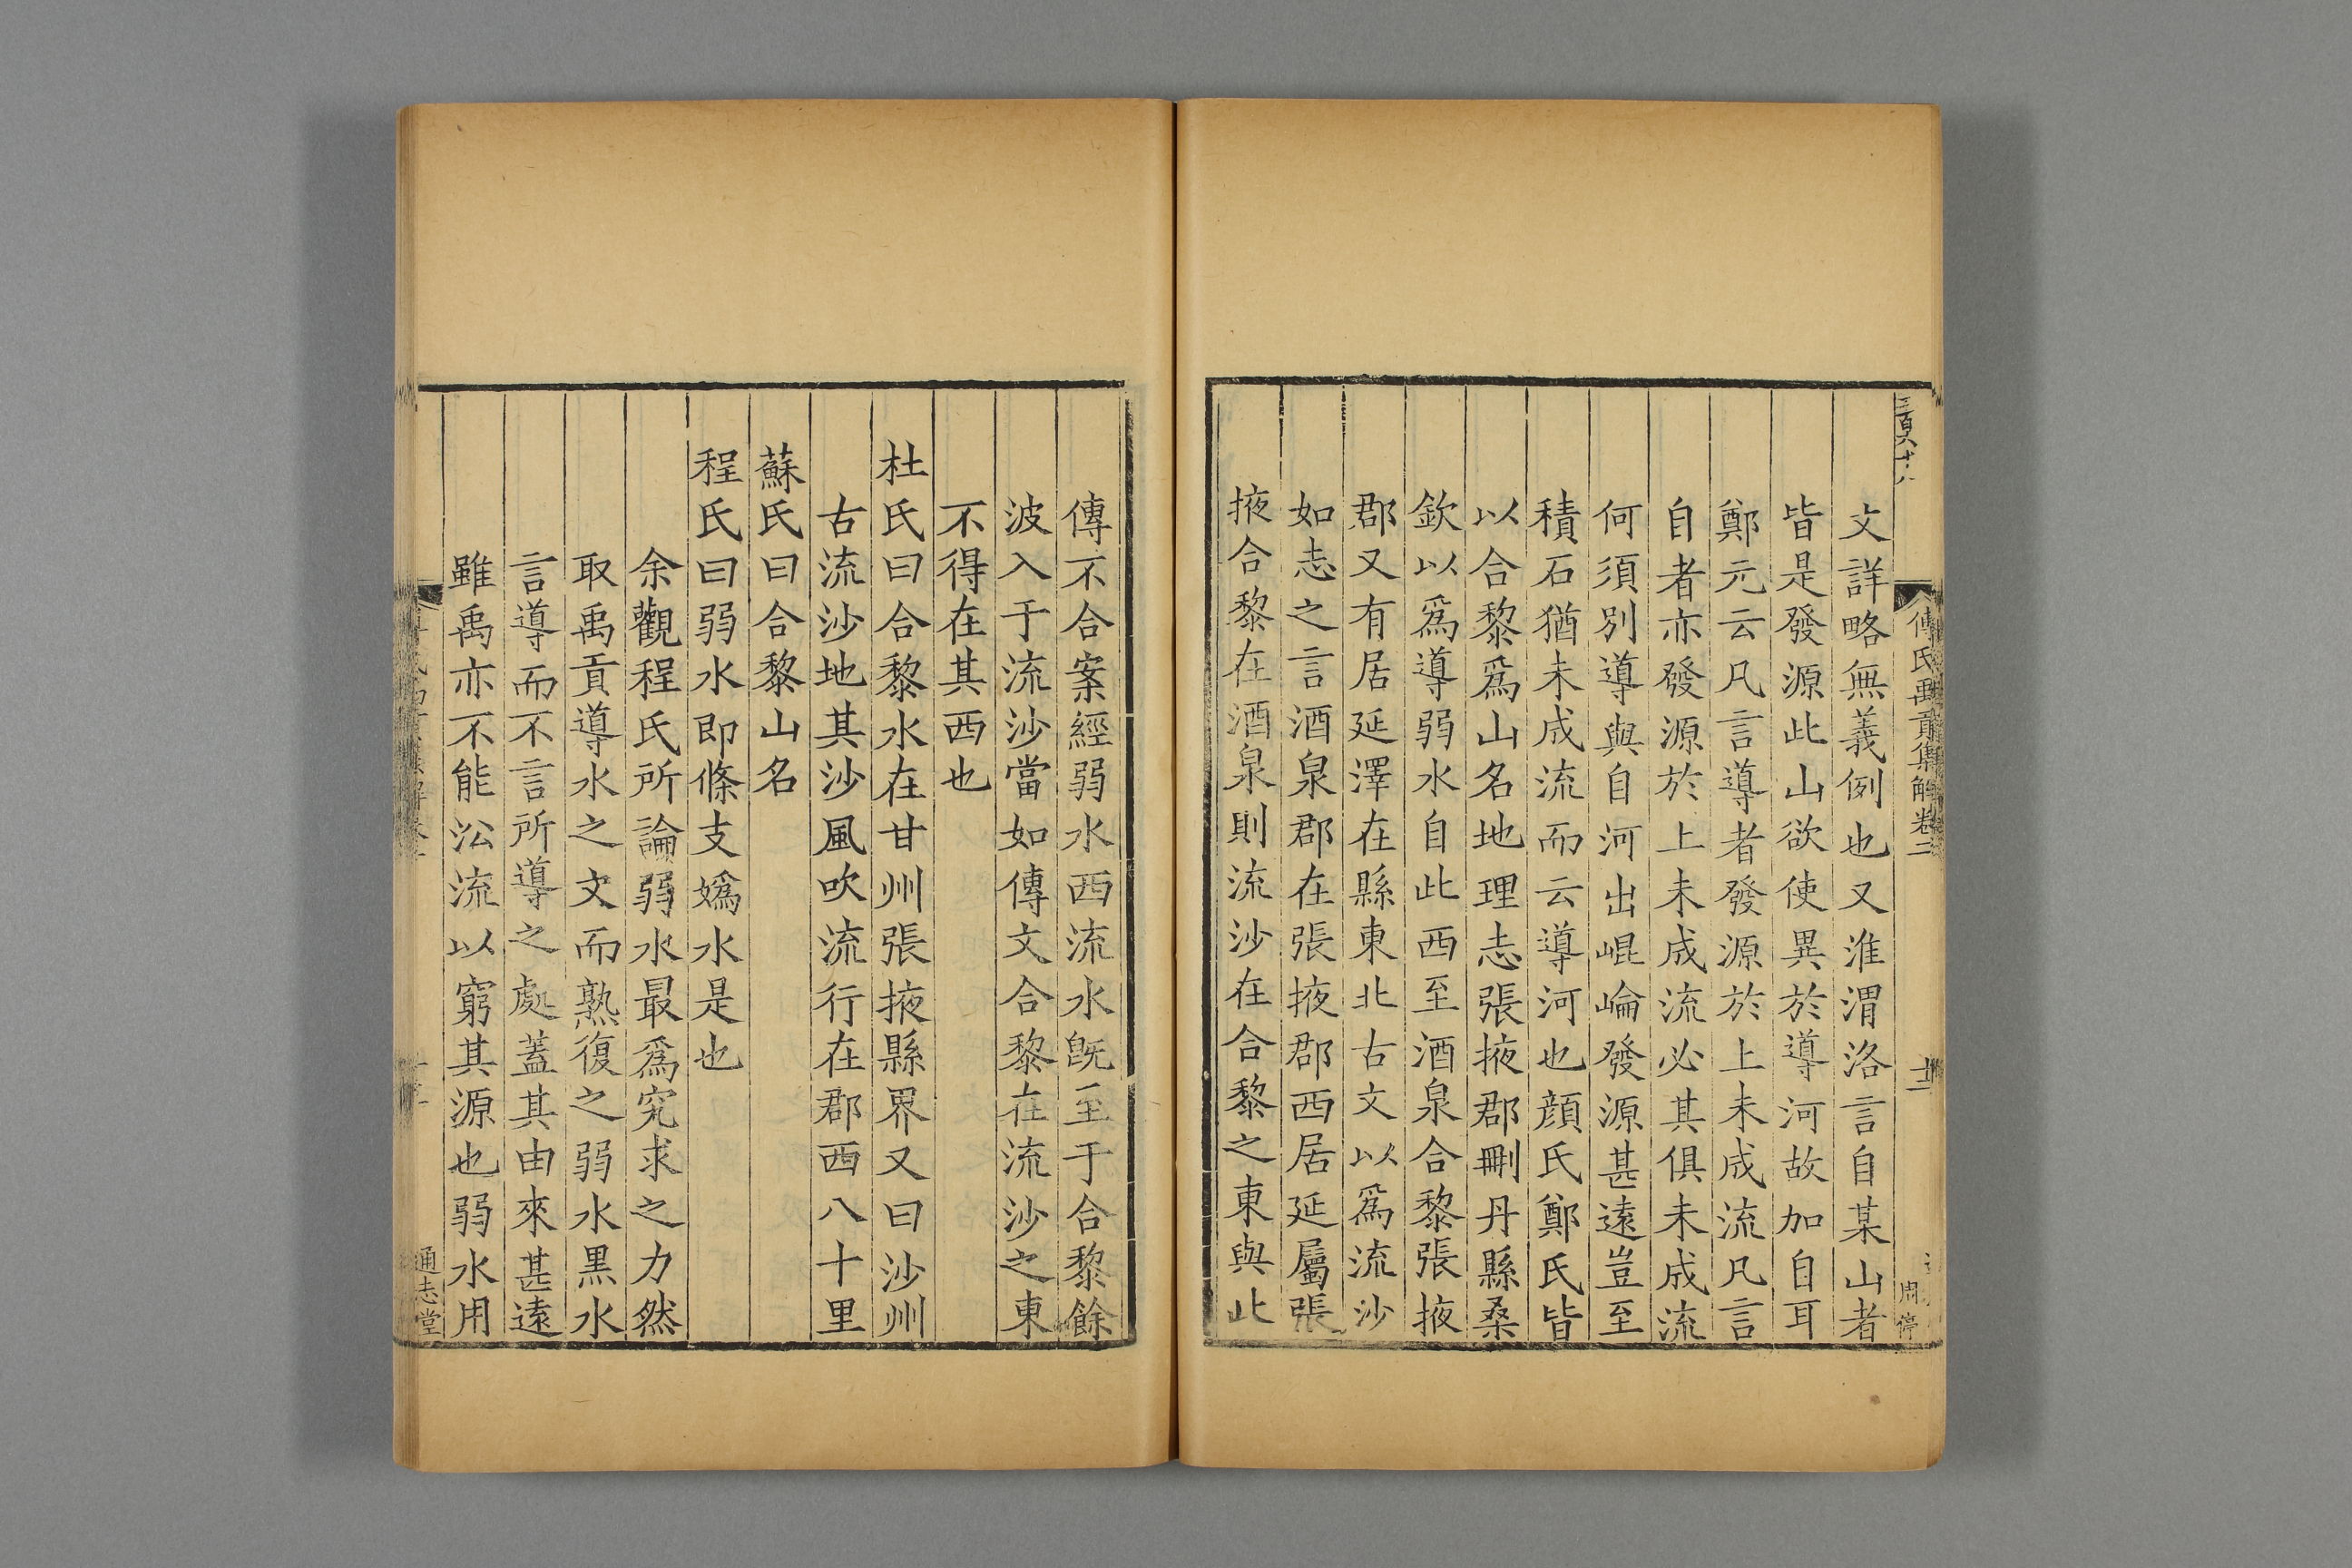 三百八十八
傅氏禹貢集解卷二
周傅
文詳略無義例也又淮渭洛言自某山者
皆是發源此山欲使異於導河故加自耳
鄭元云凡言導者發源於上未成流凡言
自者亦發源於上未成流必其俱未成流
何須別導與自河出崐崘發源甚遠豈至
積石猶未成流而云導河也顔氏鄭氏皆
以合黎爲山名地理志張掖郡刪丹縣桑
欽以爲導弱水自此西至酒泉合黎張掖
郡又有居延澤在縣東北古文以爲流沙
如志之言酒泉郡在張掖郡西居延屬張
掖合黎在酒泉則流沙在合黎之東與此
傳不合案經弱水西流水旣至于合黎餘
波入于流沙當如傳文合黎在流沙之東
不得在其西也
杜氏曰合黎水在甘州張掖縣界又曰沙州
古流沙地其沙風吹流行在郡西八十里
蘇氏曰合黎山名
程氏曰弱水即條支嬀水是也
余觀程氏所論弱水最爲究求之力然
取禹貢導水之文而熟復之弱水黒水
言導而不言所導之處蓋其由來甚遠
雖禹亦不能㳂流以窮其源也弱水用
通志堂